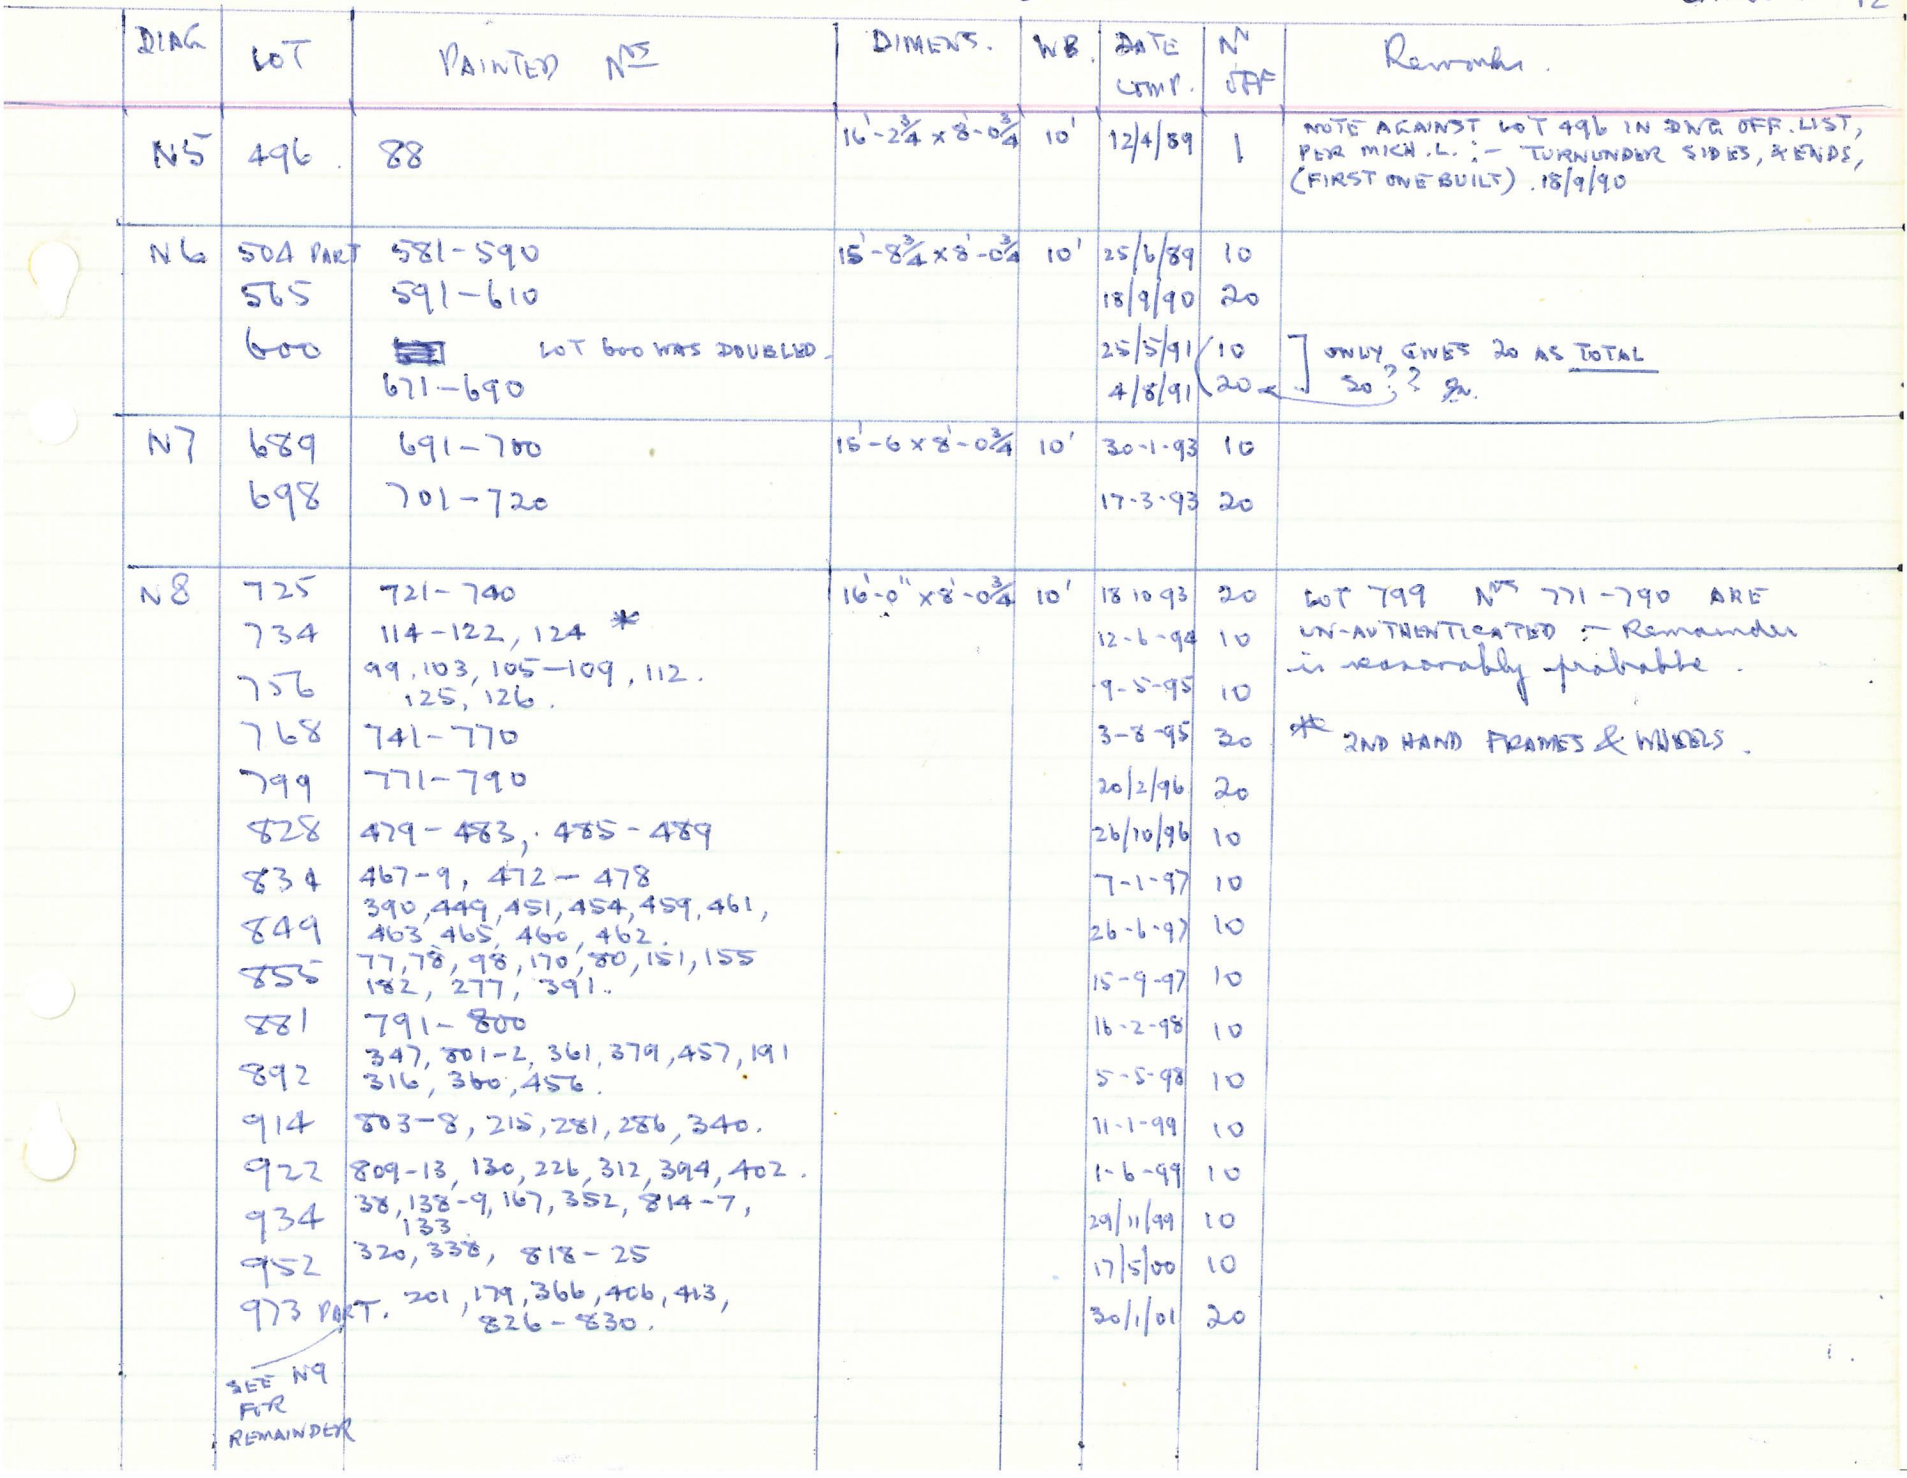 12
DIAG LOT PAINTED Nos DIMENS. WB. DATE COMP. No OFF Remarks.
N5 496. 88 16'-2¾ x 8'-0¾ 10' 12/4/89 1 NOTE AGAINST LOT 496 IN DWG OFF. LIST,
PER MICH. L. :- TURNUNDER SIDES, & ENDS,
(FIRST ONE BUILT). 18/9/90
N6 504 PART 581-590 15'-8¾ x 8'-0¾ 10' 25/6/89 10
565 591-610 18/9/90 20
600 LOT 600 WAS DOUBLED. 25/5/91 10 ONLY GIVES 20 AS TOTAL
671-690 4/8/91 20 SO ??
N7 689 691-700 15'-6 x 8'-0¾ 10' 30-1-93 10
698 701-720 17-3-93 20
N8 725 721-740 16'-0" x 8'-0¾ 10' 18 10 93 20 LOT 799 Nos 771-790 ARE
734 114-122, 124 * 12-6-94 10 UN-AUTHENTICATED :- Remainder
is reasonably probable.
756 99, 103, 105-109, 112.
125, 126. 9-5-95 10
768 741-770 3-8-95 30 * 2ND HAND FRAMES & WHEELS.
799 771-790 20/2/96 20
828 479-483, 485-489 26/10/96 10
834 467-9, 472-478 7-1-97 10
849 390, 449, 451, 454, 459, 461,
463, 465, 460, 462. 26-6-97 10
855 77, 78, 98, 170, 80, 151, 155
182, 277, 391.. 15-9-97 10
881 791-800 16-2-98 10
892 347, 801-2, 361, 379, 457, 191
316, 360, 456. 5-5-98 10
914 803-8, 215, 281, 286, 340. 11-1-99 10
922 809-13, 130, 226, 312, 394, 402. 1-6-99 10
934 38, 138-9, 167, 352, 814-7,
133 29/11/99 10
952 320, 338, 818-25 17/5/00 10
973 PART. 201, 179, 366, 406, 413,
826-830. 30/1/01 20
SEE N9
FOR
REMAINDER